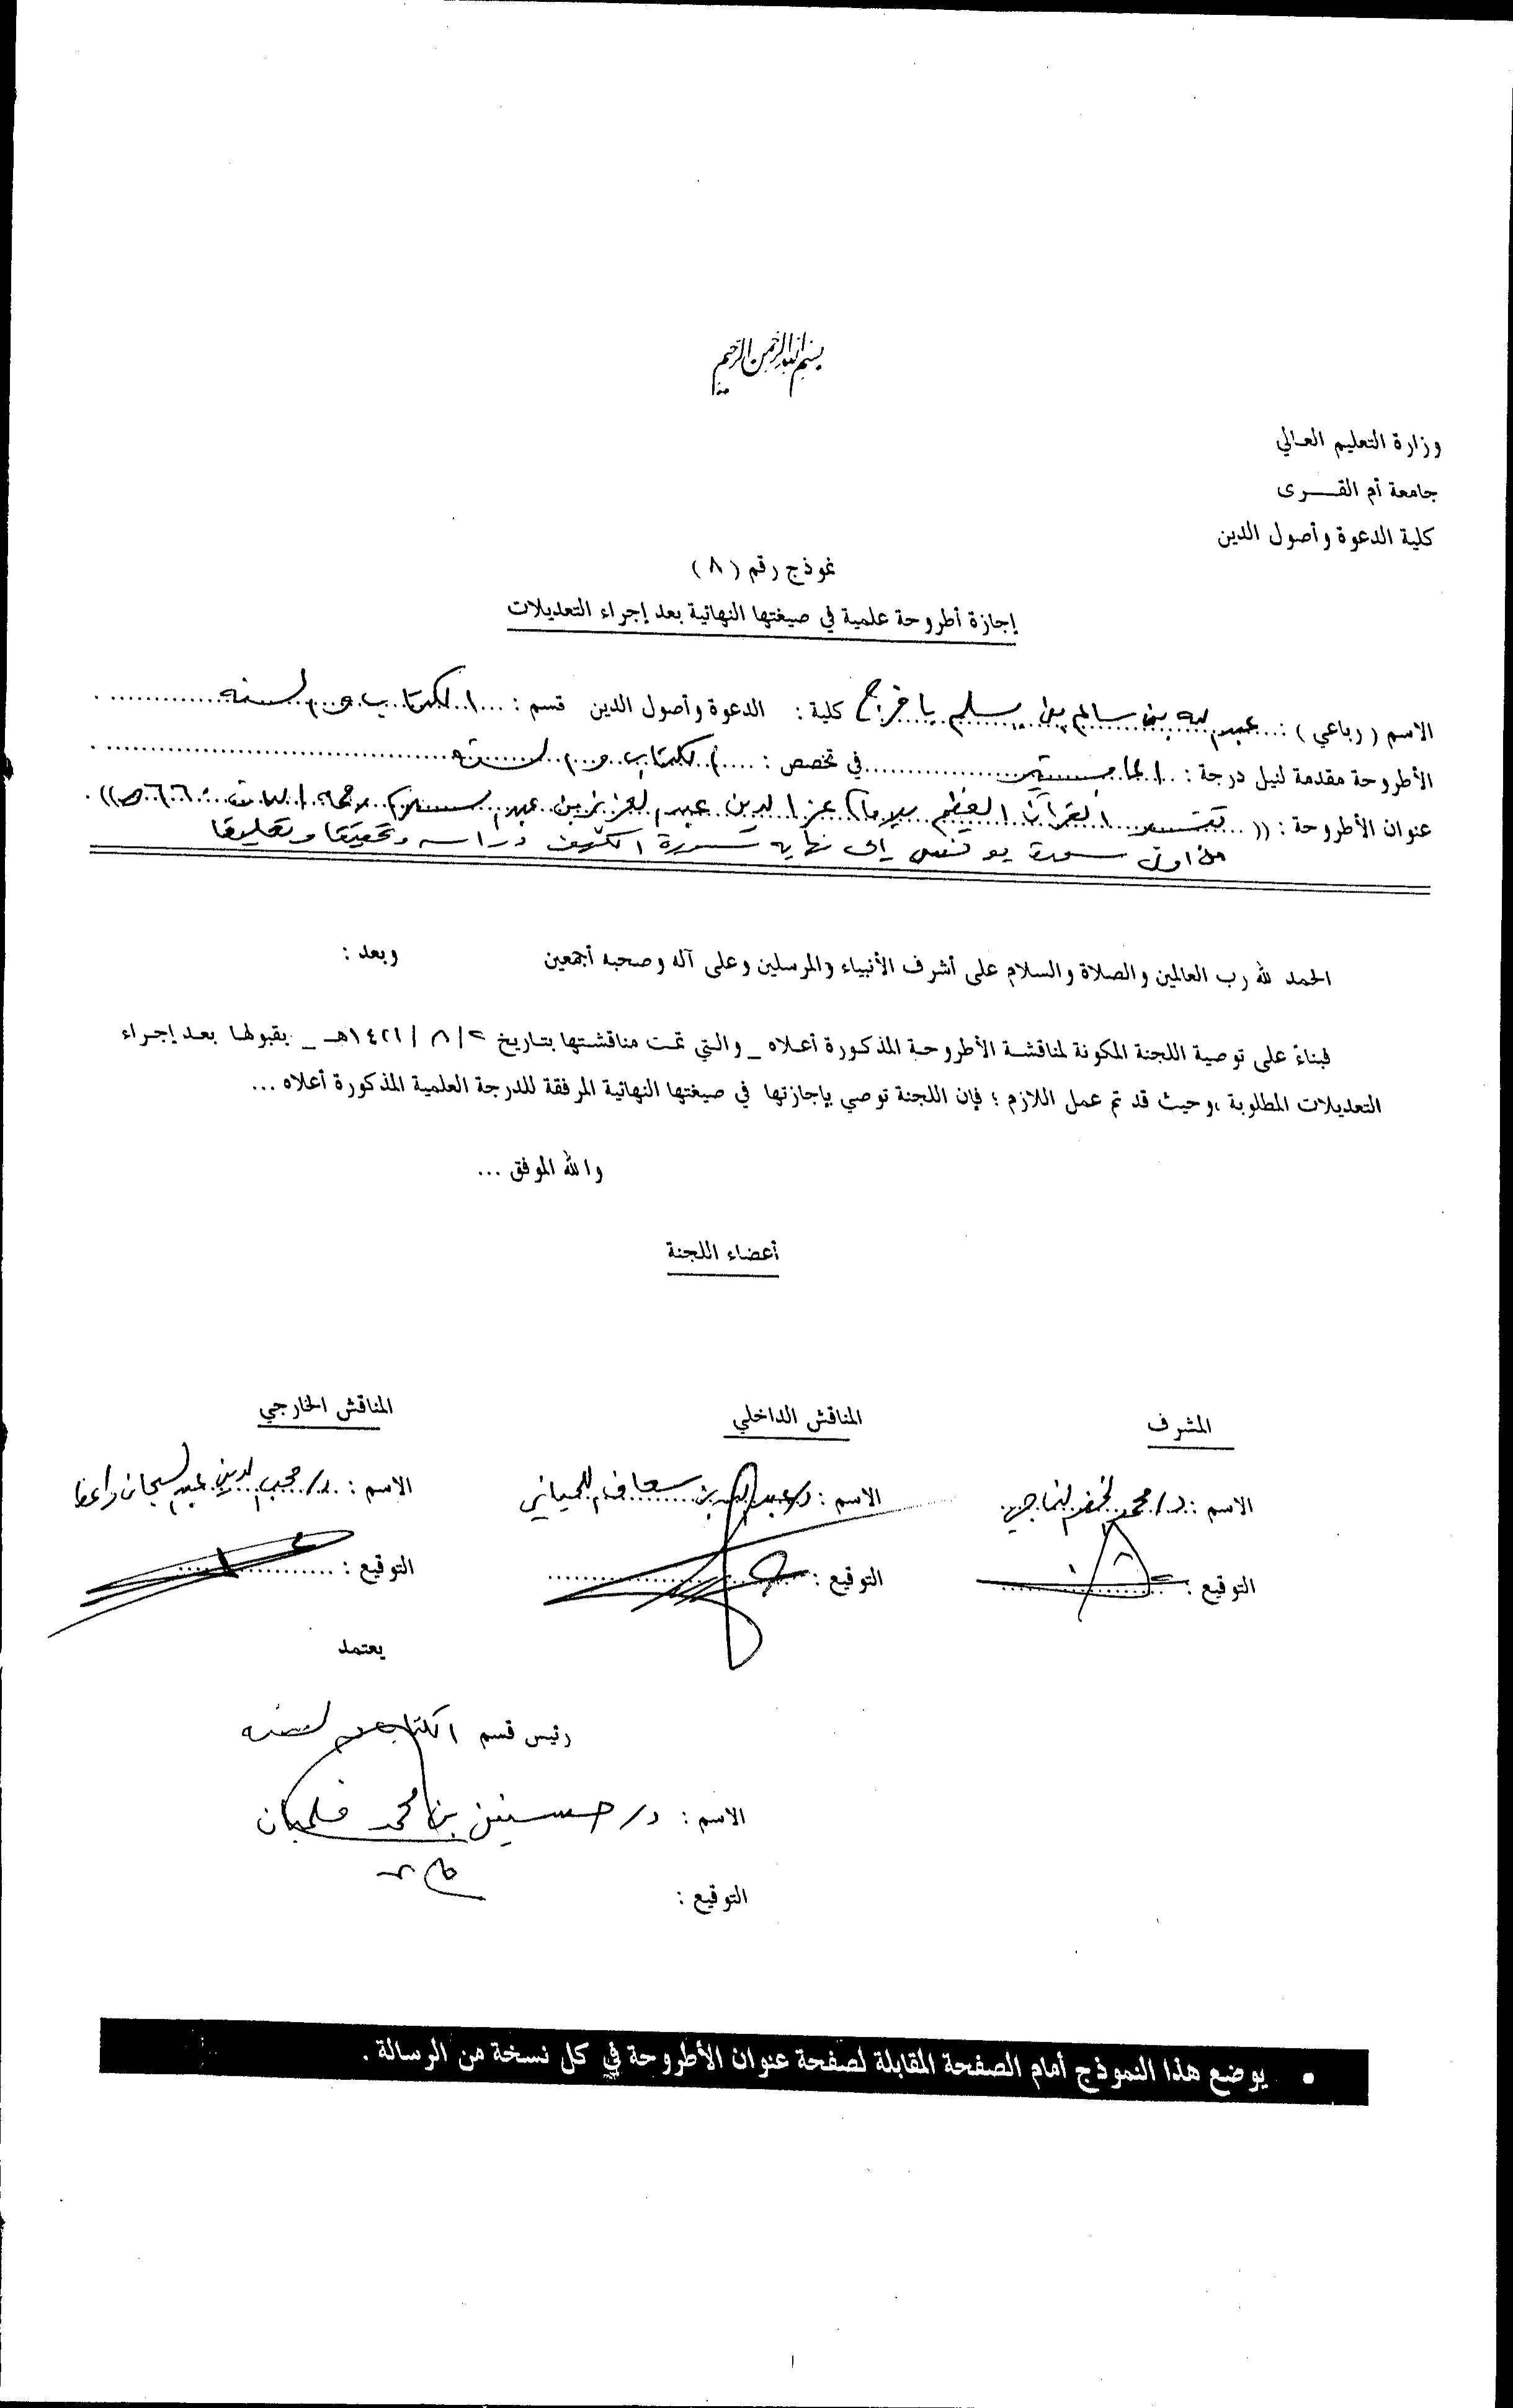 بسم الله الرحمن الرحيم
وزارة التعليم العالي
جامعة أم القـــرى
كلية الدعوة وأصول الدين
نموذج رقم ( ٨ )
إجازة أطروحة علمية في صيغتها النهائية بعد إجراء التعديلات
الاسم ( رباعي ) : عبد الله بن سالم بن يسلم بافرج كلية : الدعوة وأصول الدين قسم : الكتاب والسنه
الأطروحة مقدمة لنيل درجة : الماجستير في تخصص : الكتاب والسنه
عنوان الأطروحة : (( تفسير القرآن العظيم للإمام عز الدين عبد العزيز بن عبد السلام رحمه الله ت ٦٦٠ هـ )) .
من اول سورة يونس إلى نهايه سورة الكهف دراسه وتحقيقا وتعليقا
الحمد لله رب العالمين والصلاة والسلام على أشرف الأنبياء والمرسلين وعلى آله وصحبه أجمعين وبعد :
فبناءً على توصية اللجنة المكونة لمناقشة الأطروحة المذكورة أعلاه _ والتي تمت مناقشتها بتاريخ ٢ / ٨ / ١٤٢١هـ _ بقبولها بعد إجراء
التعديلات المطلوبة ، وحيث قد تم عمل اللازم ؛ فإن اللجنة توصي بإجازتها في صيغتها النهائية المرفقة للدرجة العلمية المذكورة أعلاه ...
والله الموفق ...
أعضاء اللجنة
المشرف المناقش الداخلي المناقش الخارجي
الاسم : د/ محمد الخضر الناجي الاسم : د/ عبد الله بن سعاف اللحياني الاسم : د/ محب الدين عبد السبحان واعظ
التوقيع : التوقيع : التوقيع :
يعتمد
رئيس قسم الكتاب والسنه
الاسم : د/ حسنين بن محمد فلمبان
التوقيع :
• يوضع هذا النموذج أمام الصفحة المقابلة لصفحة عنوان الأطروحة في كل نسخة من الرسالة .